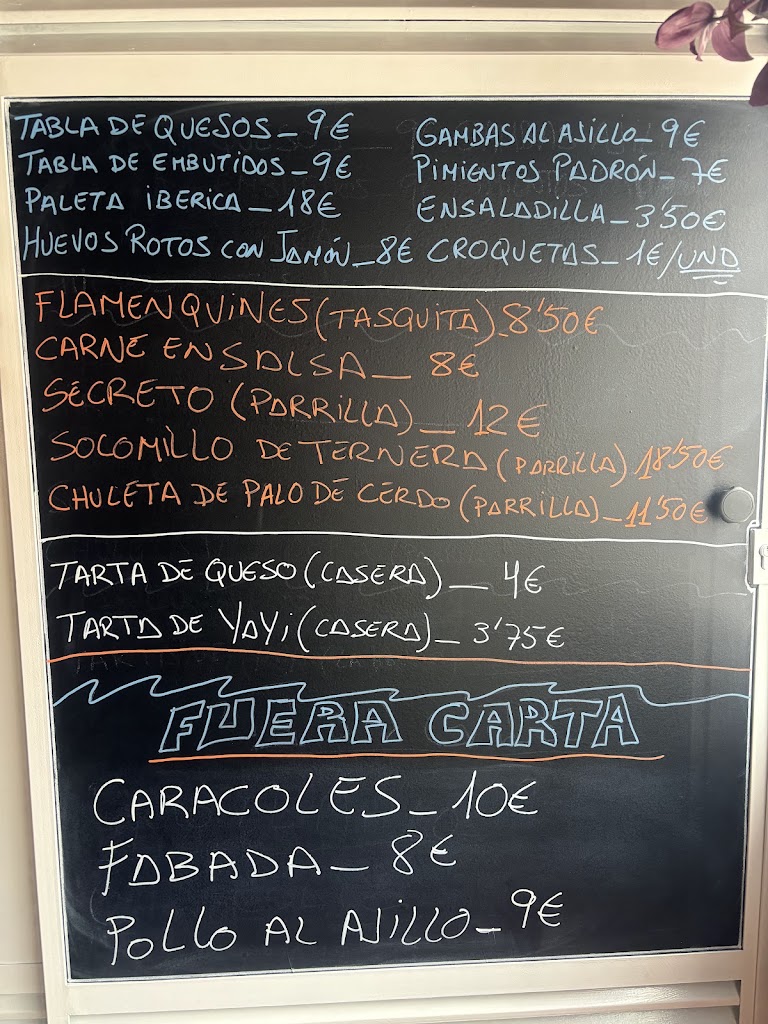 TABLA DE QUESOS_ 9€
TABLA DE EMBUTIDOS_ 9€
PALETA IBERICA_18€
HUEVOS ROTOS CON JAMÓN_8€
GAMBAS AL AJILLO_ 9€
PIMIENTOS PADRÓN_ 7€
ENSALADILLA_3'50€
CROQUETAS_ 1€/UND
FLAMENQUINES (TASQUITA)_8'50€
CARNE EN SALSA_ 8€
SECRETO (PARRILLA)_ 12€
SOLOMILLO DE TERNERA (PARRILLA) 18'50€
CHULETA DE PALO DE CERDO (PARRILLA)_11'50€
TARTA DE QUESO (CASERA)_ 4€
TARTA DE YAYI (CASERA)_ 3'75€
FUERA CARTA
CARACOLES_ 10€
FABADA_ 8€
POLLO AL AJILLO_ 9€